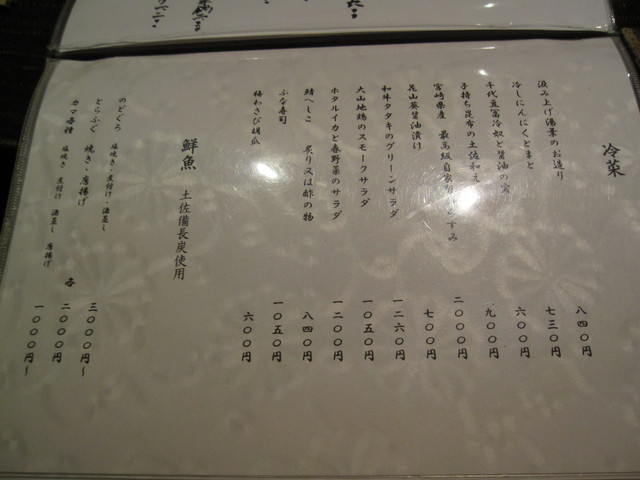 冷菜
汲み上げ湯葉のお造り 八四〇円
冷しにんにくとまと 七三〇円
千代豆富冷奴と醤油の実 六〇〇円
子持ち昆布の土佐和え 九〇〇円
宮崎県産 最高級 二〇〇〇円
花山葵醤油漬け 七〇〇円
和牛タタキのグリーンサラダ 一二六〇円
大山地鶏のスモークサラダ 一〇五〇円
ホタルイカと春野菜のサラダ 一二〇〇円
鯖へしこ 炙り又は酢の物 八四〇円
ふな寿司 一〇五〇円
梅わさび胡瓜 六〇〇円
鮮魚 土佐備長炭使用
のどぐろ 塩焼き・煮付け・酒蒸し 三〇〇〇円〜
とらふぐ 焼き・唐揚げ 各 二〇〇〇円
カマ各種 塩焼き 煮付け 酒蒸し 唐揚げ 一〇〇〇円〜